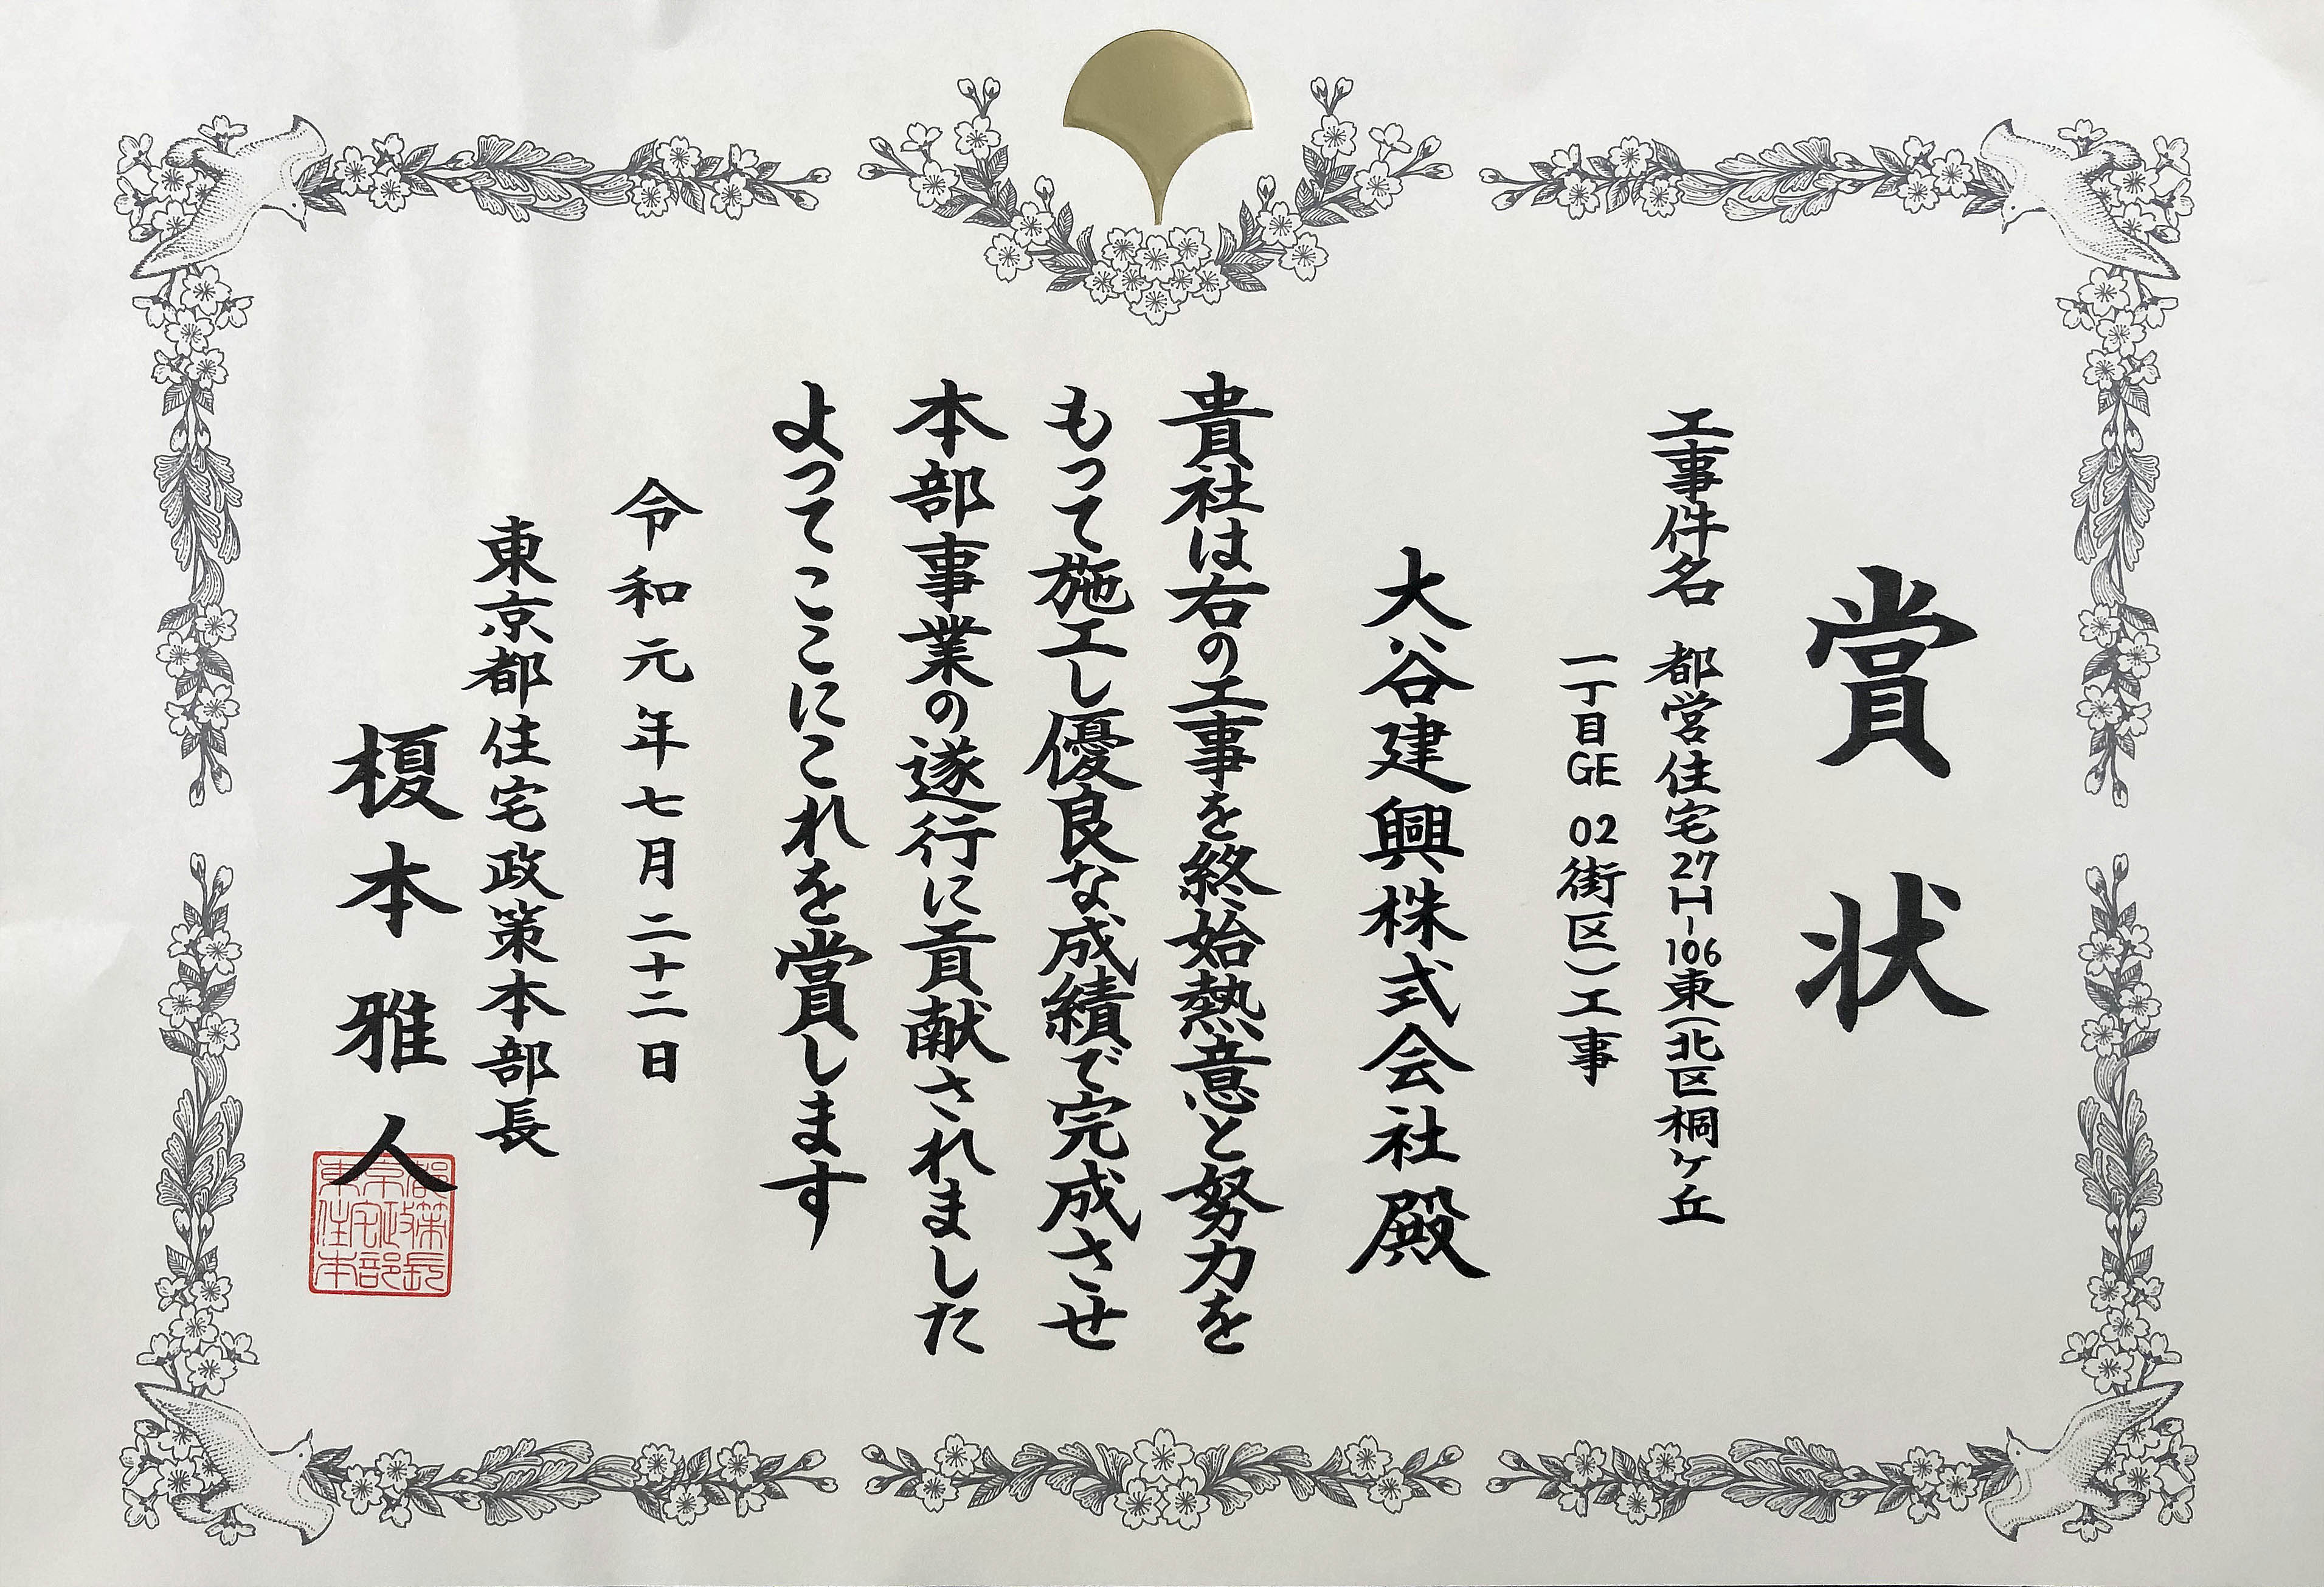 賞状
工事件名 都営住宅27H-106東(北区桐ケ丘
一丁目GE 02街区)工事
大谷建興株式会社殿
貴社は右の工事を終始熱意と努力を
もって施工し優良な成績で完成させ
本部事業の遂行に貢献されました
よってここにこれを賞します
令和元年七月二十二日
東京都住宅政策本部長
榎本雅人
東京都
住宅政策
本部長